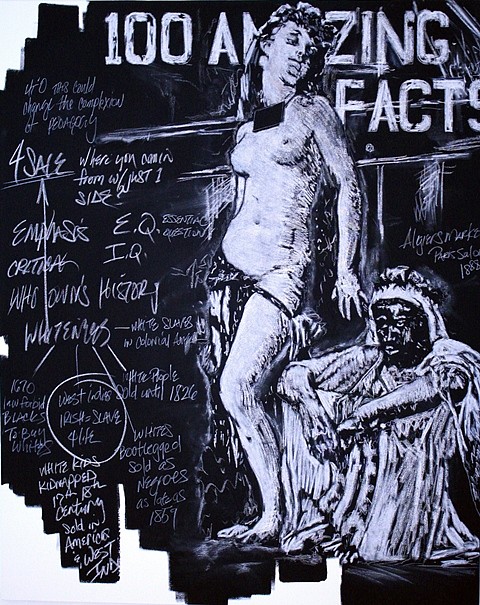 100 AM ZING
FACTS
YO THIS could
change the complexion
of PEDAGOGY
4 SALE
where you comin
from w/ just 1
SIDE?
EMPHASIS
CRITICAL
E.Q. ESSENTIAL
QUESTION
I.Q.
WHO OWNS HISTORY
WHITENESS
WHITE SLAVES
in colonial
1670
law forbid
BLACKS
TO BUY
WHITES
WEST INDIES
IRISH SLAVE
4 LIFE
White People
Sold until 1826
WHITES
Bootlegged
sold as
NEGROES
as late as
1859
WHITE KIDS
KIDNAPPED
17th 18th
Century
Sold in
AMERICA
& WEST
IND
Paris Salon
1888